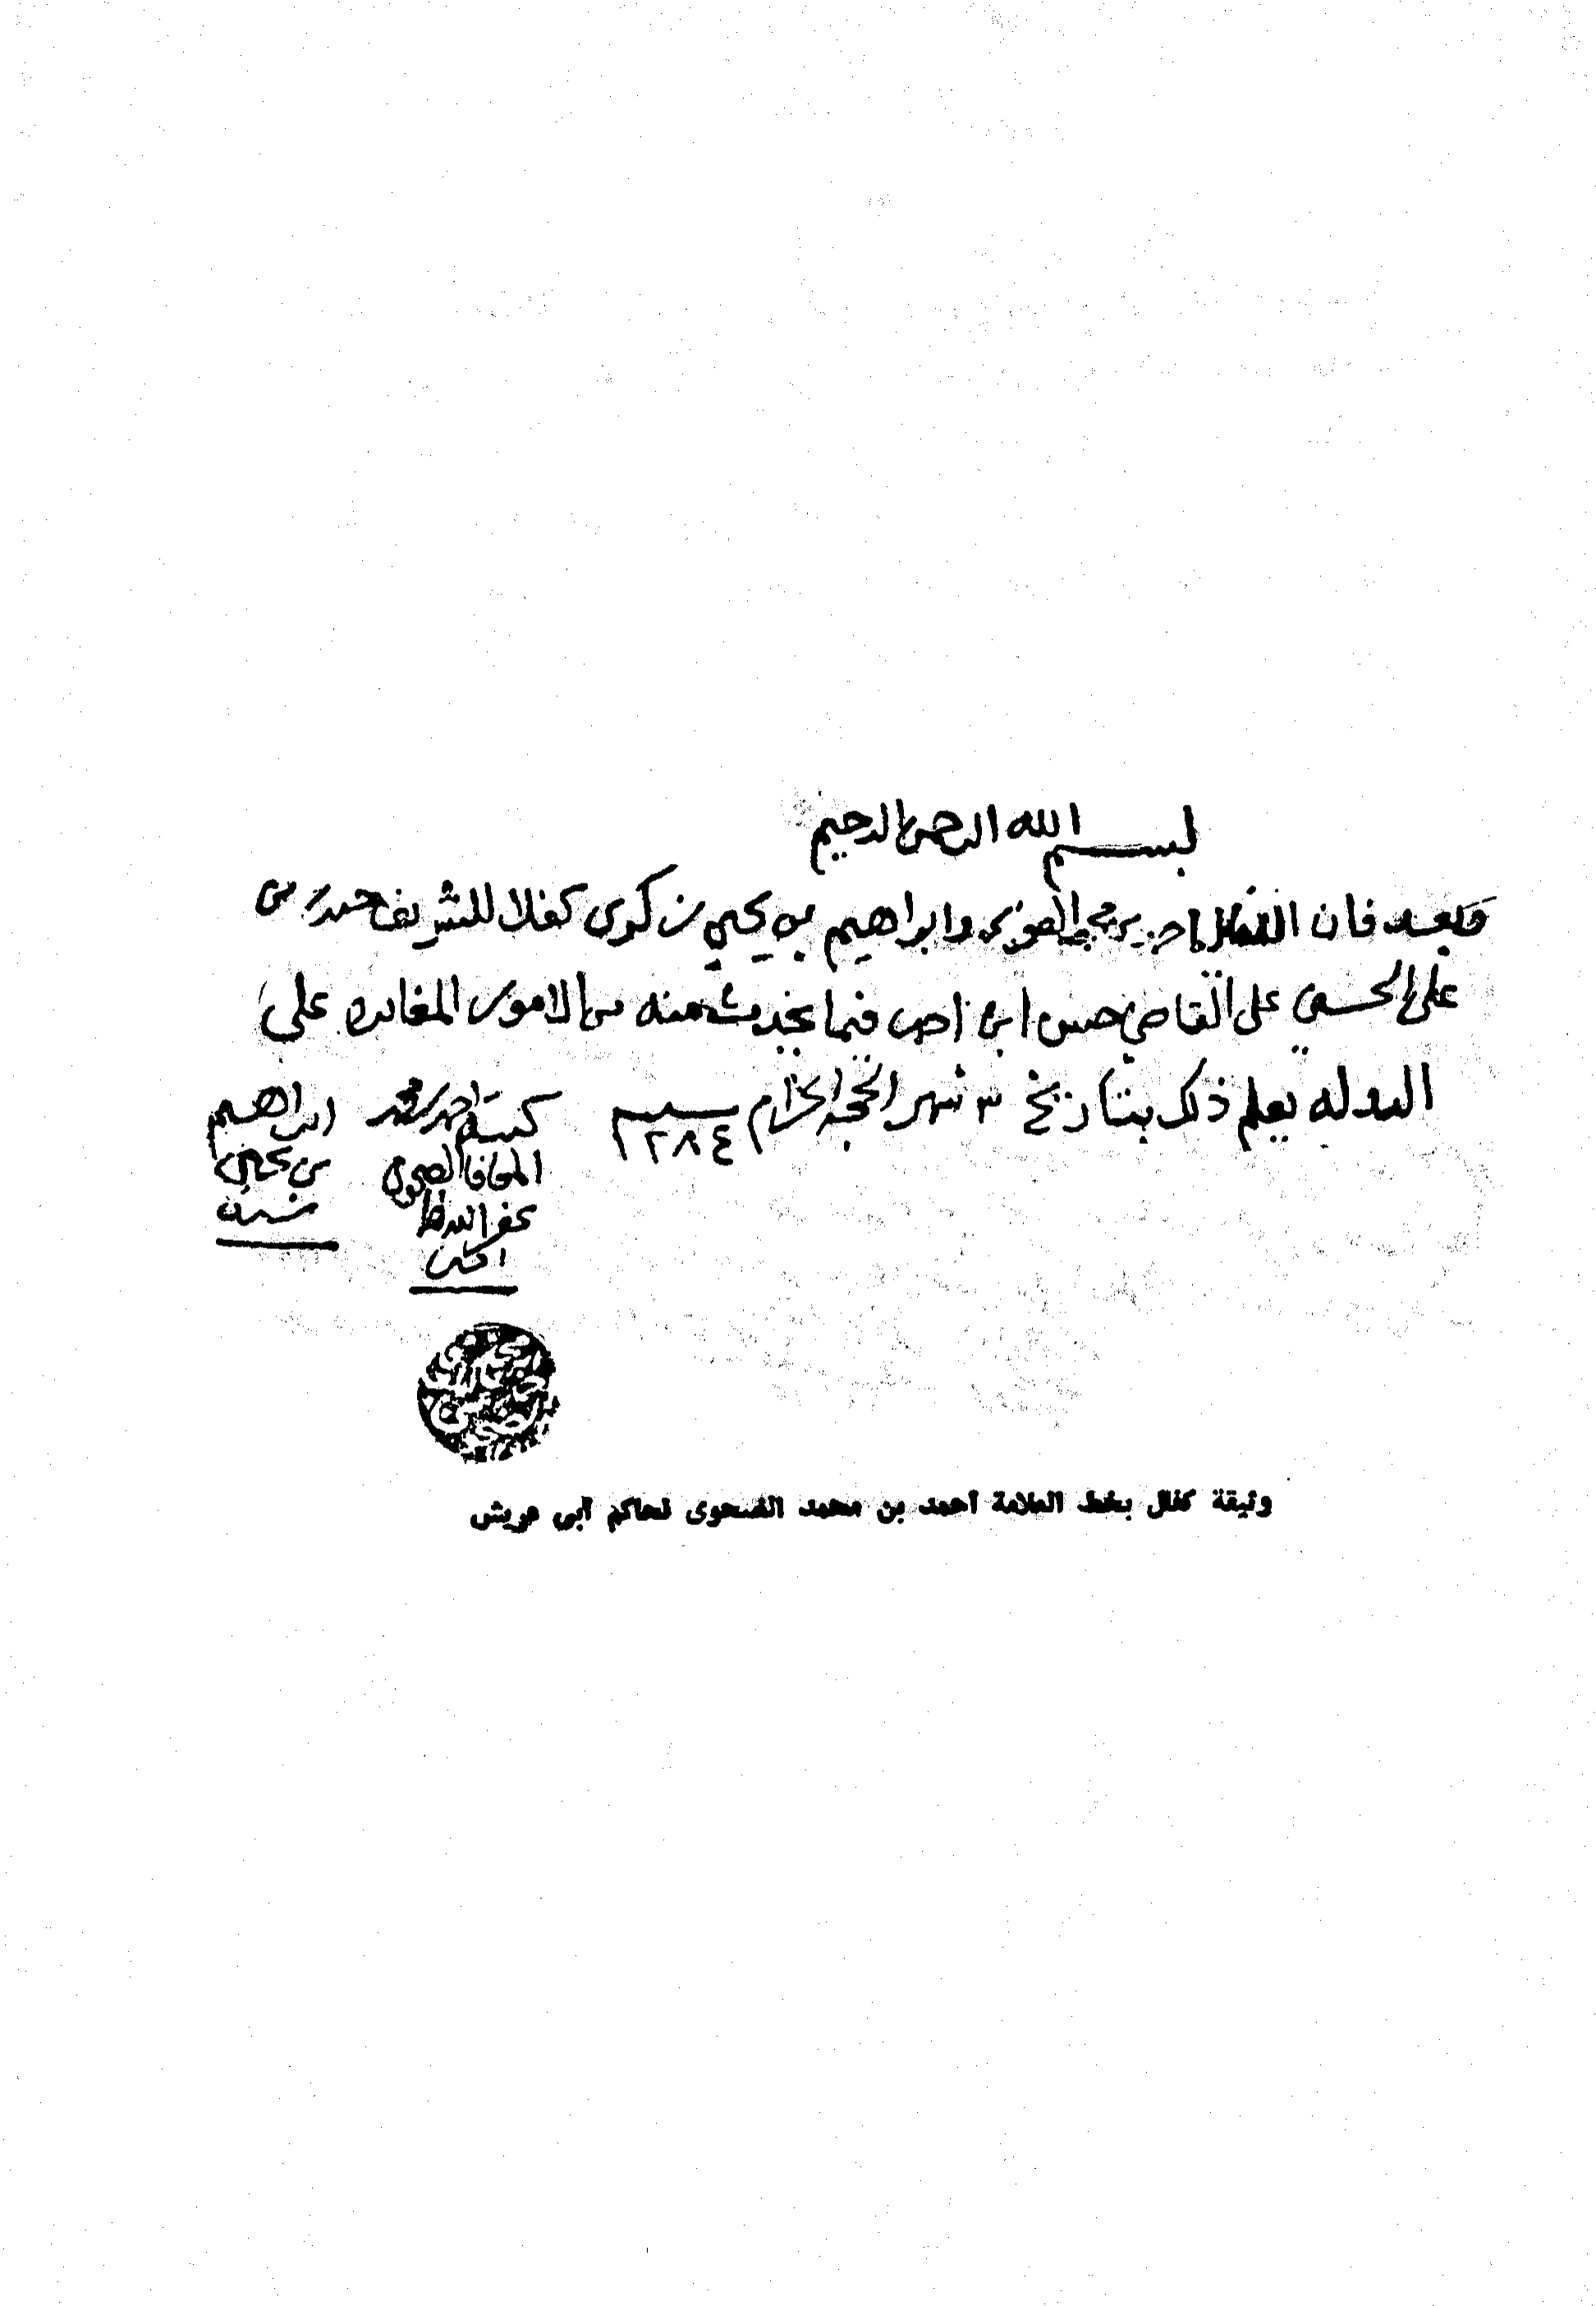 بسم الله الرحمن الرحيم
وبعد فان احمد بن محمد وابراهيم بن يحيى بن كرى كفلا للشريف حيدر بن
على الحسني على القاضي حسن ابن احمد فيما يحدث منه من الامور المغايره على
الدوله يعلم ذلك بتاريخ ٣ شهر الحجه الحرام سنه ١٢٨٤
كتبه احمد بن محمد
الله
ابراهيم
بن يحيى
وثيقة كفل بخط العلامة أحمد بن محمد الضحوى لحاكم أبى عريش